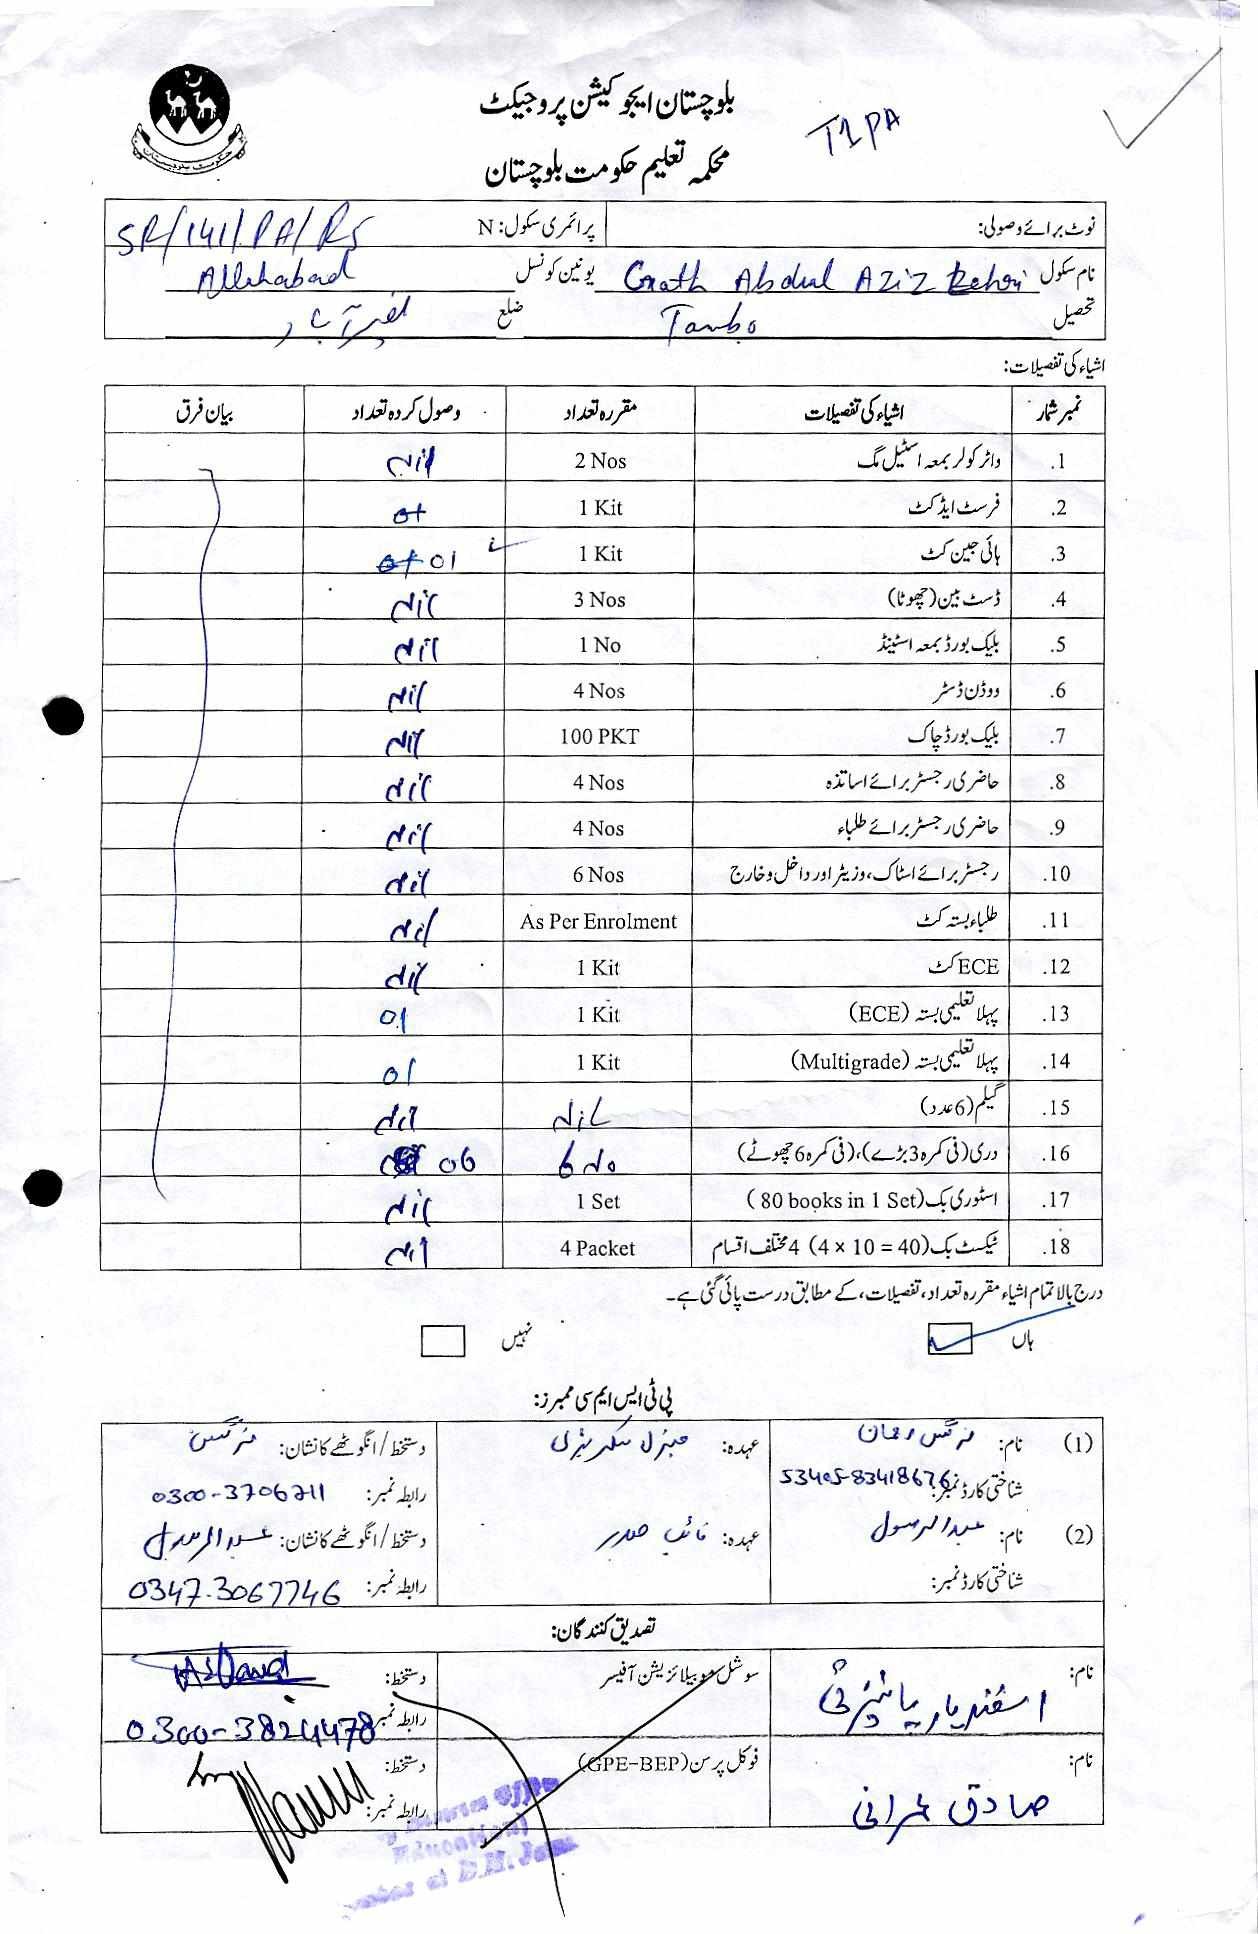 بلوچستان ایجوکیشن پروجیکٹ
T2PA
محکمہ تعلیم حکومت بلوچستان
حکومت بلوچستان
نوٹ برائے وصولی: پرائمری سکول: N SR/141/PA/RS
نام سکول Goath Abdul Aziz Rehri یونین کونسل Allahabad
تحصیل Tambo ضلع نصیر آباد
اشیاء کی تفصیلات:
نمبر شمار اشیاء کی تفصیلات مقررہ تعداد وصول کردہ تعداد بیان فرق
1. واٹر کولر بمعہ اسٹیل مگ 2 Nos Nil
2. فرسٹ ایڈ کٹ 1 Kit 01
3. ہائی جین کٹ 1 Kit 01
4. ڈسٹ بین (چھوٹا) 3 Nos Nil
5. بلیک بورڈ بمعہ اسٹینڈ 1 No Nil
6. ووڈن ڈسٹر 4 Nos Nil
7. بلیک بورڈ چاک 100 PKT Nil
8. حاضری رجسٹر برائے اساتذہ 4 Nos Nil
9. حاضری رجسٹر برائے طلباء 4 Nos Nil
10. رجسٹر برائے اسٹاک، وزیٹر اور داخل و خارج 6 Nos Nil
11. طلباء بستہ کٹ As Per Enrolment Nil
12. ECE کٹ 1 Kit Nil
13. پہلا تعلیمی بستہ (ECE) 1 Kit 01
14. پہلا تعلیمی بستہ (Multigrade) 1 Kit 01
15. گیلم (6 عدد) Nil Nil
16. دری (فی کمرہ 3 بڑے)، (فی کمرہ 6 چھوٹے) 6 No 06
17. اسٹوری بک (80 books in 1 Set) 1 Set Nil
18. ٹیکسٹ بک (4 x 10 = 40) 4 مختلف اقسام 4 Packet Nil
درج بالا تمام اشیاء مقررہ تعداد، تفصیلات، کے مطابق درست پائی گئی ہے۔
ہاں نہیں
پی ٹی ایس ایم سی ممبرز:
(1) نام: نرگس رحمان عہدہ: جنرل سکریٹری دستخط / انگوٹھے کا نشان: نرگس
شناختی کارڈ نمبر: 53405-83418676 رابطہ نمبر: 0300-3706211
(2) نام: عبدالرسول عہدہ: نائب صدر دستخط / انگوٹھے کا نشان: عبدالرسول
شناختی کارڈ نمبر: رابطہ نمبر: 0347-3067746
تصدیق کنندگان:
نام: اسفندیار پانیزئی سوشل موبیلائزیشن آفیسر دستخط:
رابطہ نمبر 0300-3824478
نام: صادق عمرانی فوکل پرسن (GPE-BEP) دستخط:
رابطہ نمبر:
Education
at D.M. Jam